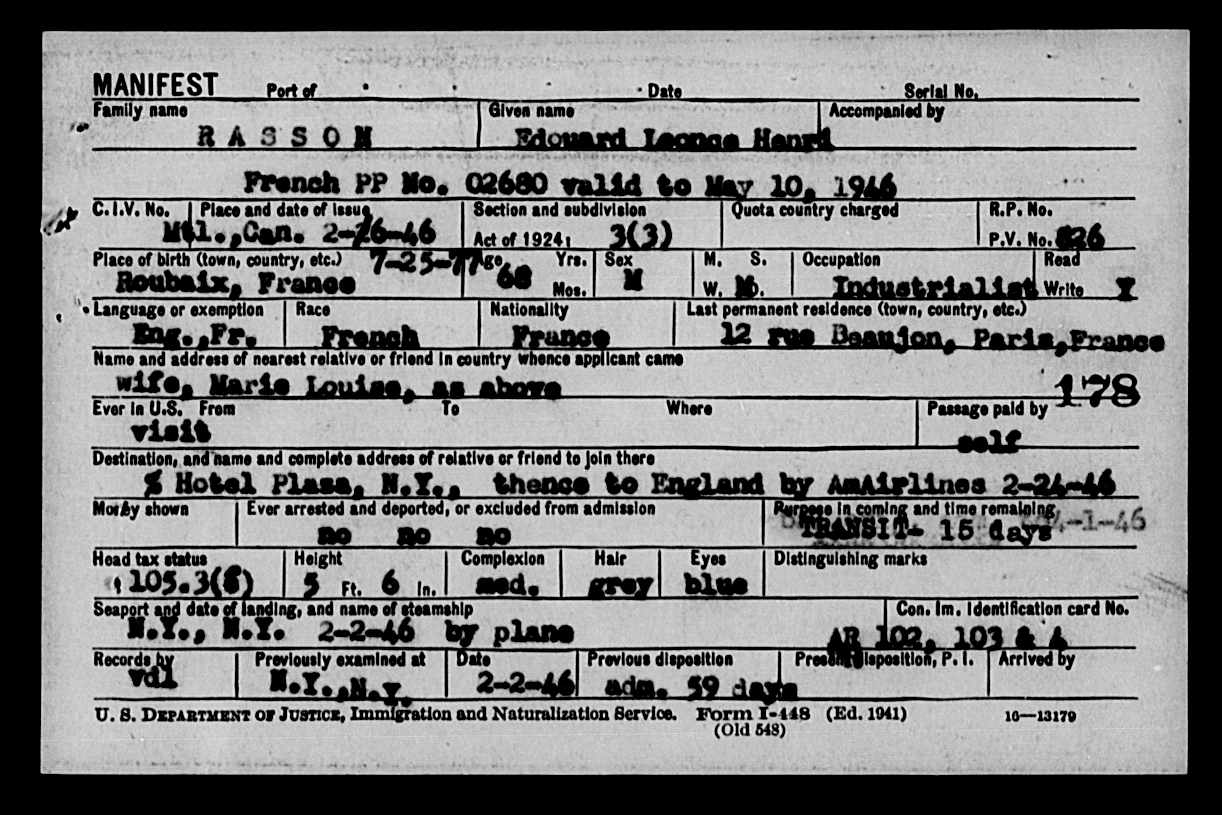 MANIFEST Port of Date Serial No.
Family name Given name Accompanied by
RASSON Edouard Leonce Henri
French PP No. 02680 valid to May 10, 1946
C.I.V. No. Place and date of issue Section and subdivision Quota country charged R.P. No.
Mtl.,Can. 2-26-46 Act of 1924: 3(3) P.V. No. 626
Place of birth (town, country, etc.) 7-25-77 Age Yrs. Sex M. S. Occupation Read
Roubaix, France 68 Mos. M W. D. Industrialist Write Y
Language or exemption Race Nationality Last permanent residence (town, country, etc.)
Eng.,Fr. French France 12 rue Beaujon, Paris,France
Name and address of nearest relative or friend in country whence applicant came
wife, Marie Louise, as above 178
Ever in U.S. From To Where Passage paid by
visit self
Destination, and name and complete address of relative or friend to join there
% Hotel Plaza, N.Y., thence to England by AmAirlines 2-24-46
Money shown Ever arrested and deported, or excluded from admission Purpose in coming and time remaining
no no no TRANSIT- 15 days 4-1-46
Head tax status Height Complexion Hair Eyes Distinguishing marks
105.3(f) 5 Ft. 6 In. med. grey blue
Seaport and date of landing, and name of steamship Con. Im. Identification card No.
N.Y., N.Y. 2-2-46 by plane AR 102, 103 & 4
Records by Previously examined at Date Previous disposition Present disposition, P. I. Arrived by
vdl N.Y.,N.Y. 2-2-46 adm. 59 days
U. S. DEPARTMENT OF JUSTICE, Immigration and Naturalization Service. Form I-448 (Ed. 1941) 16—13179
(Old 548)